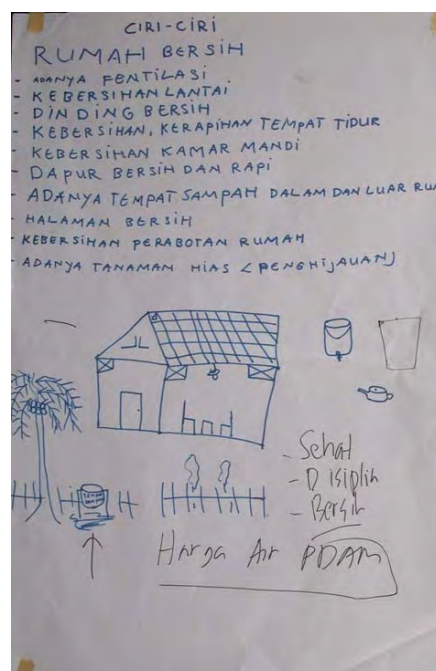 CIRI-CIRI
RUMAH BERSIH
- ADANYA FENTILASI
- KEBERSIHAN LANTAI
- DINDING BERSIH
- KEBERSIHAN, KERAPIHAN TEMPAT TIDUR
- KEBERSIHAN KAMAR MANDI
- DAPUR BERSIH DAN RAPI
- ADANYA TEMPAT SAMPAH DALAM DAN LUAR RU
- HALAMAN BERSIH
- KEBERSIHAN PERABOTAN RUMAH
- ADANYA TANAMAN HIAS < PENGHIJAUAN)
- Sehat
- Disiplin
- Bersih
Harga Air PDAM